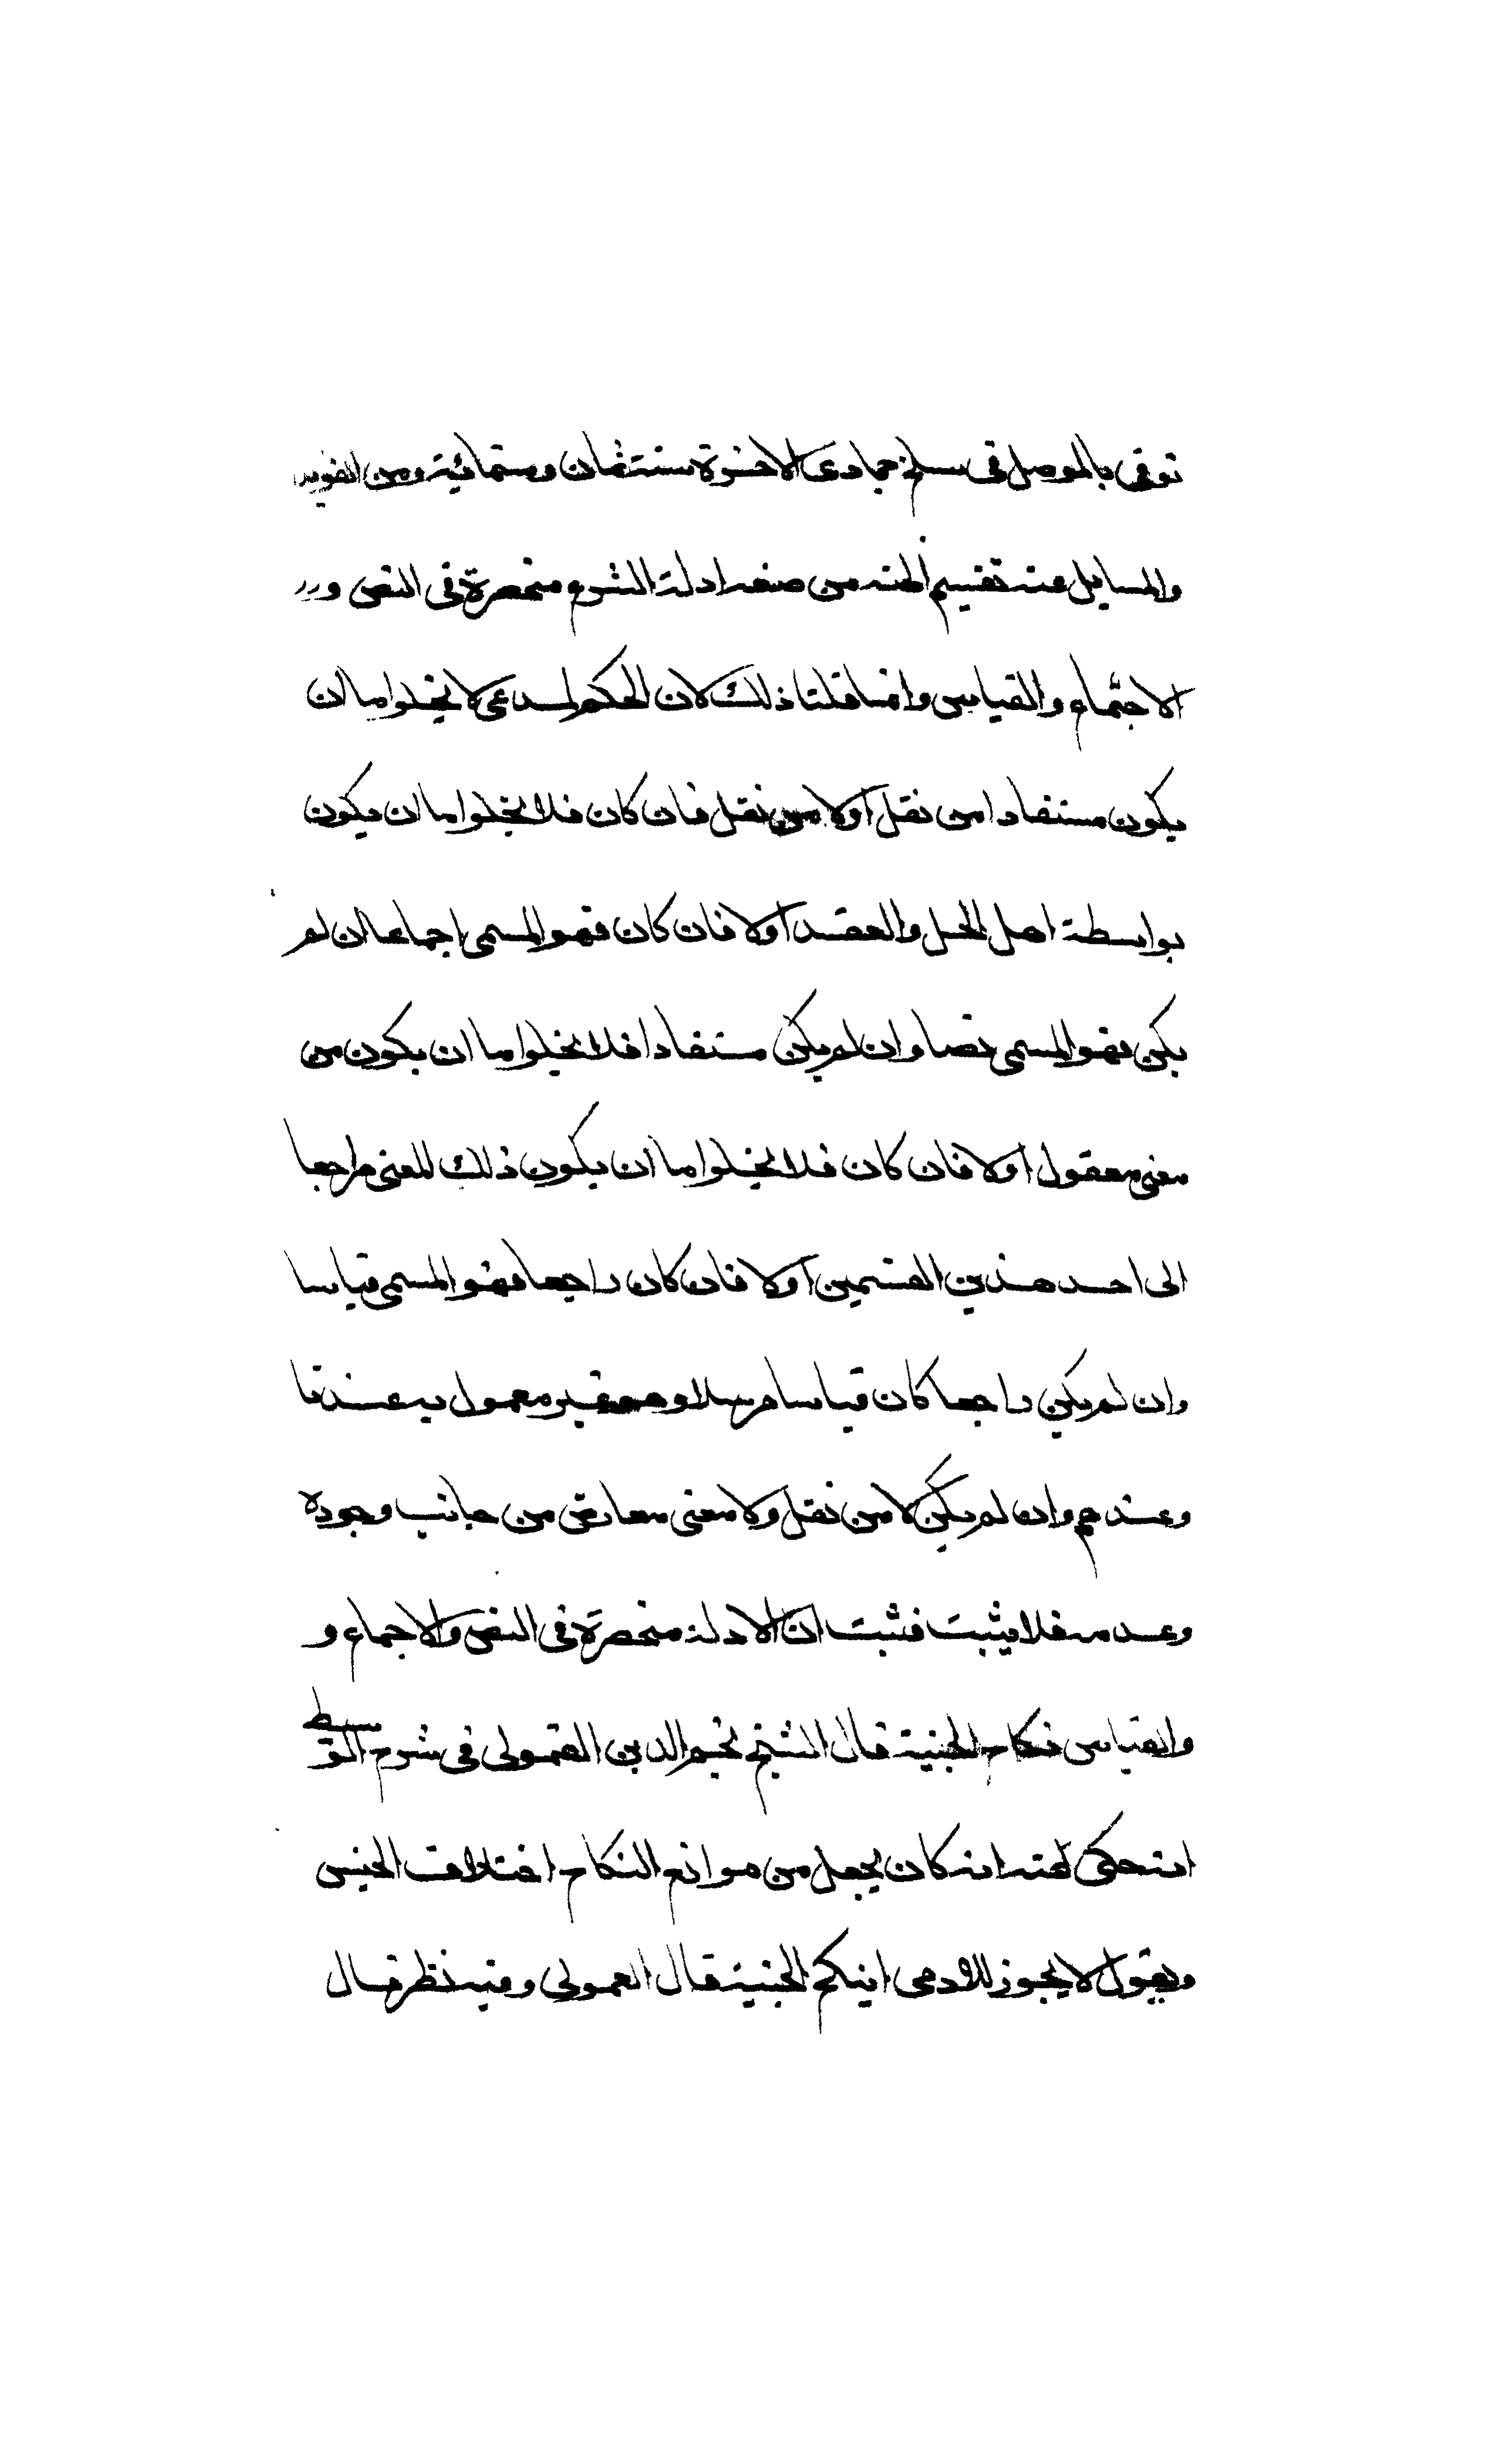 توفى بالموصل فى سلخ جمادى الاخرة سنة ثمان وستمائية ومن الفوايد
والمسايل عنه تقسيم الهند من صنعه ادلة الشرع منحصرة فى النص و
الاجماع والقياس وانما قلنا ذلك لان الحكم المدعى لا يخلوا ما ان
يكون مستفادا من نقل اولا من نقل فان كان فلا يخلوا ما ان يكون
بواسطة اهل الحل والعقد اولا فان كان فهو المسمى اجماعا ان لم
يكن فهو المسمى نصا وان لم يكن مستفادا فلا يخلوا ما ان يكون من
معنى معقول اولا فان كان فلا يخلوا ما ان يكون ذلك المعنى راجعا
الى احد هذين القسمين اولا فان كان راجعا فهو المسمى قياسا
وان لم يكن راجعا كان قياسا مرسلا وهو غير معمول به عندنا
وعندهم وان لم يكن لا من نقل ولا معنى معارض من جانب وجوده
وعدمه فلا يثبت فثبت ان الادلة منحصرة فى النص والاجماع و
والقياس نكاح الجنية قال الشيخ نجم الدين القمولى فى شرح الوسيط
انه حكى عنه انه كان يجعل من موانع النكاح اختلاف الجنس
ويقول لا يجوز للادمى اينكح الجنية قال القمولى وفيه نظر قال